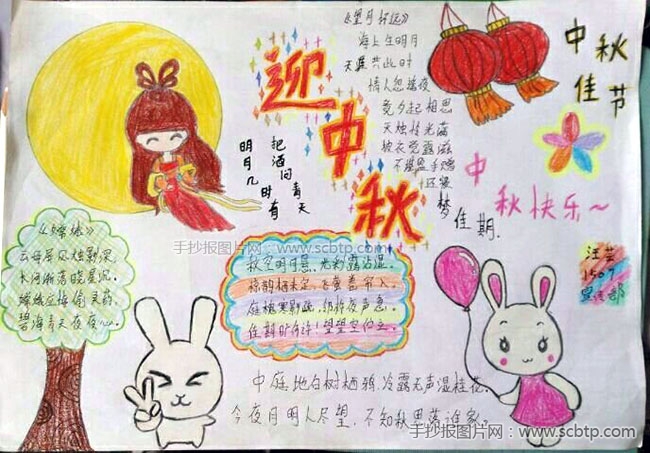 《望月怀远》
海上生明月
天涯共此时
情人怨遥夜
竟夕起相思
灭烛怜光满
披衣觉露滋
不堪盈手赠
还寝
梦
佳期.
迎中秋
中秋
佳节
中
秋快乐~
明月几时有
把酒问青天
《嫦娥》
云母屏风烛影深,
长河渐落晓星沉.
嫦娥应悔偷灵药,
碧海青天夜夜心.
秋空明月悬,光彩露沾湿.
惊鹊栖未定,飞萤卷帘入.
庭槐寒影疏,邻杵夜声急.
佳期旷何许!望望空伫立.
1507
宣传部
中庭地白树栖鸦,冷露无声湿桂花.
今夜月明人尽望,不知秋思落谁家.
手抄报图片网:www.scbtp.com
手抄报图片网:www.scbtp.com